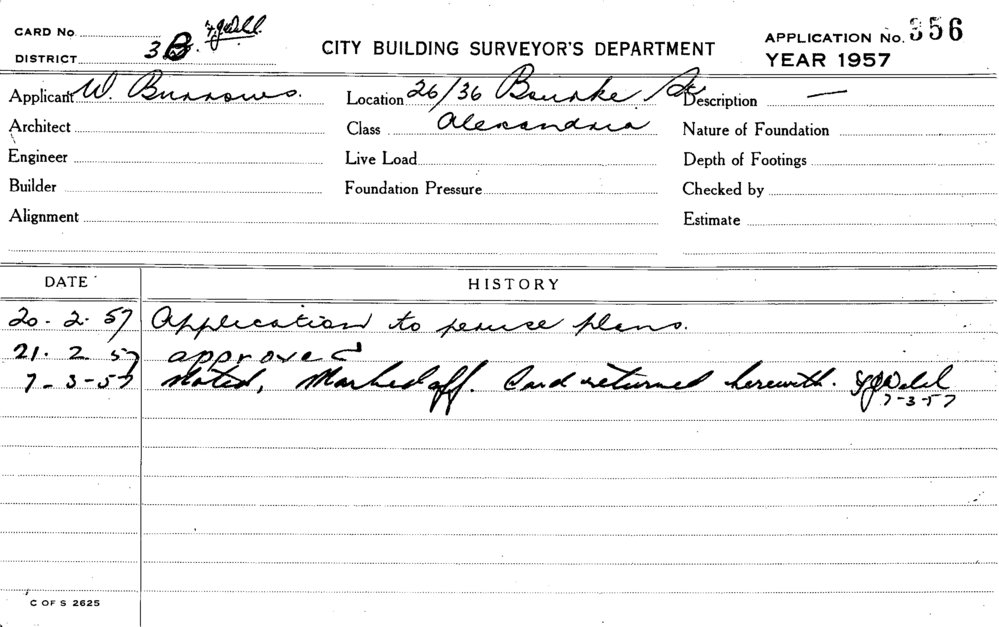 CARD No.
DISTRICT 3B.
CITY BUILDING SURVEYOR'S DEPARTMENT
APPLICATION No. 356
YEAR 1957
Applicant W. Burrows. Location 26/36 Bourke St Description —
Architect Class Alexandria Nature of Foundation
Engineer Live Load Depth of Footings
Builder Foundation Pressure Checked by
Alignment Estimate
DATE HISTORY
20. 2. 57 Application to peruse plans.
21. 2. 57 approved
7-3-57 Noted, Marked off. Card returned herewith.
7-3-57
C OF S 2625